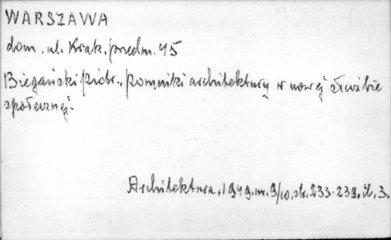 WARSZAWA
dom. ul. Krak. przedm. 45
Biegański Piotr., Pomniki architektury w nowej służbie
społecznej.
Architektura, 1949. nr. 9/10. str. 233-239, il. 3.